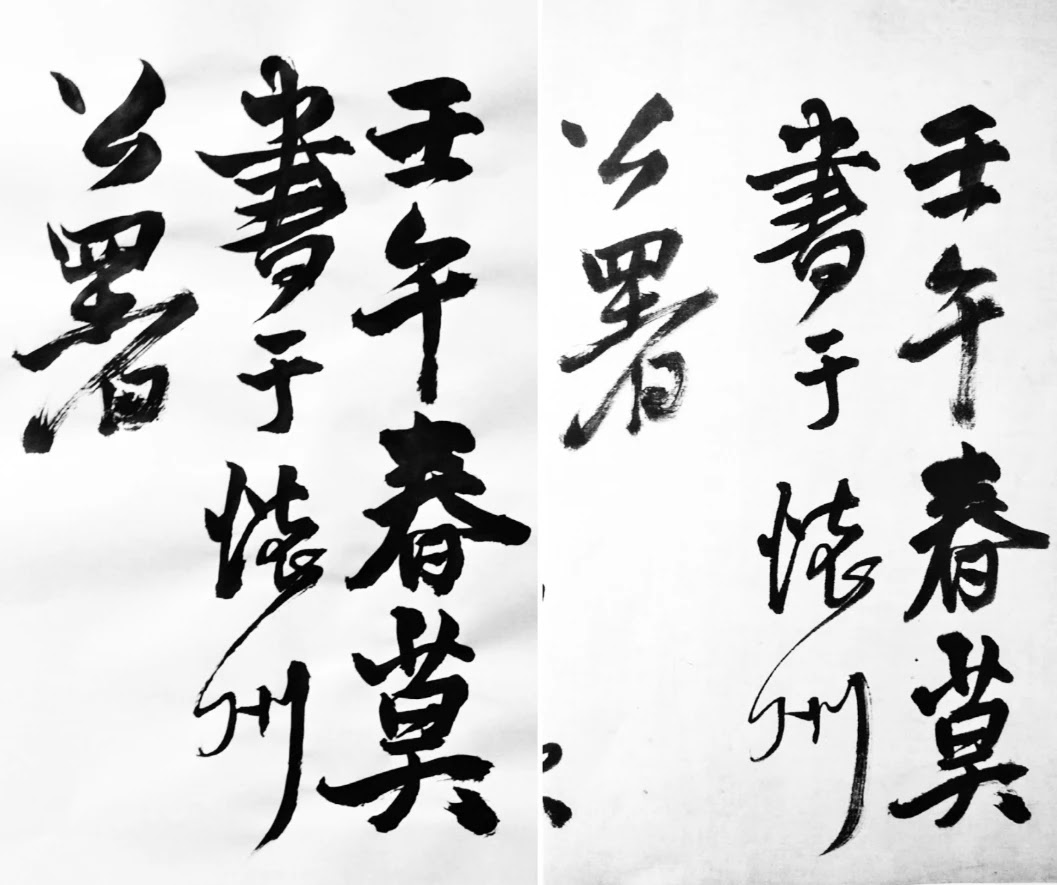 壬午春莫
書于懐州
公署
壬午春莫
書于懐州
公署